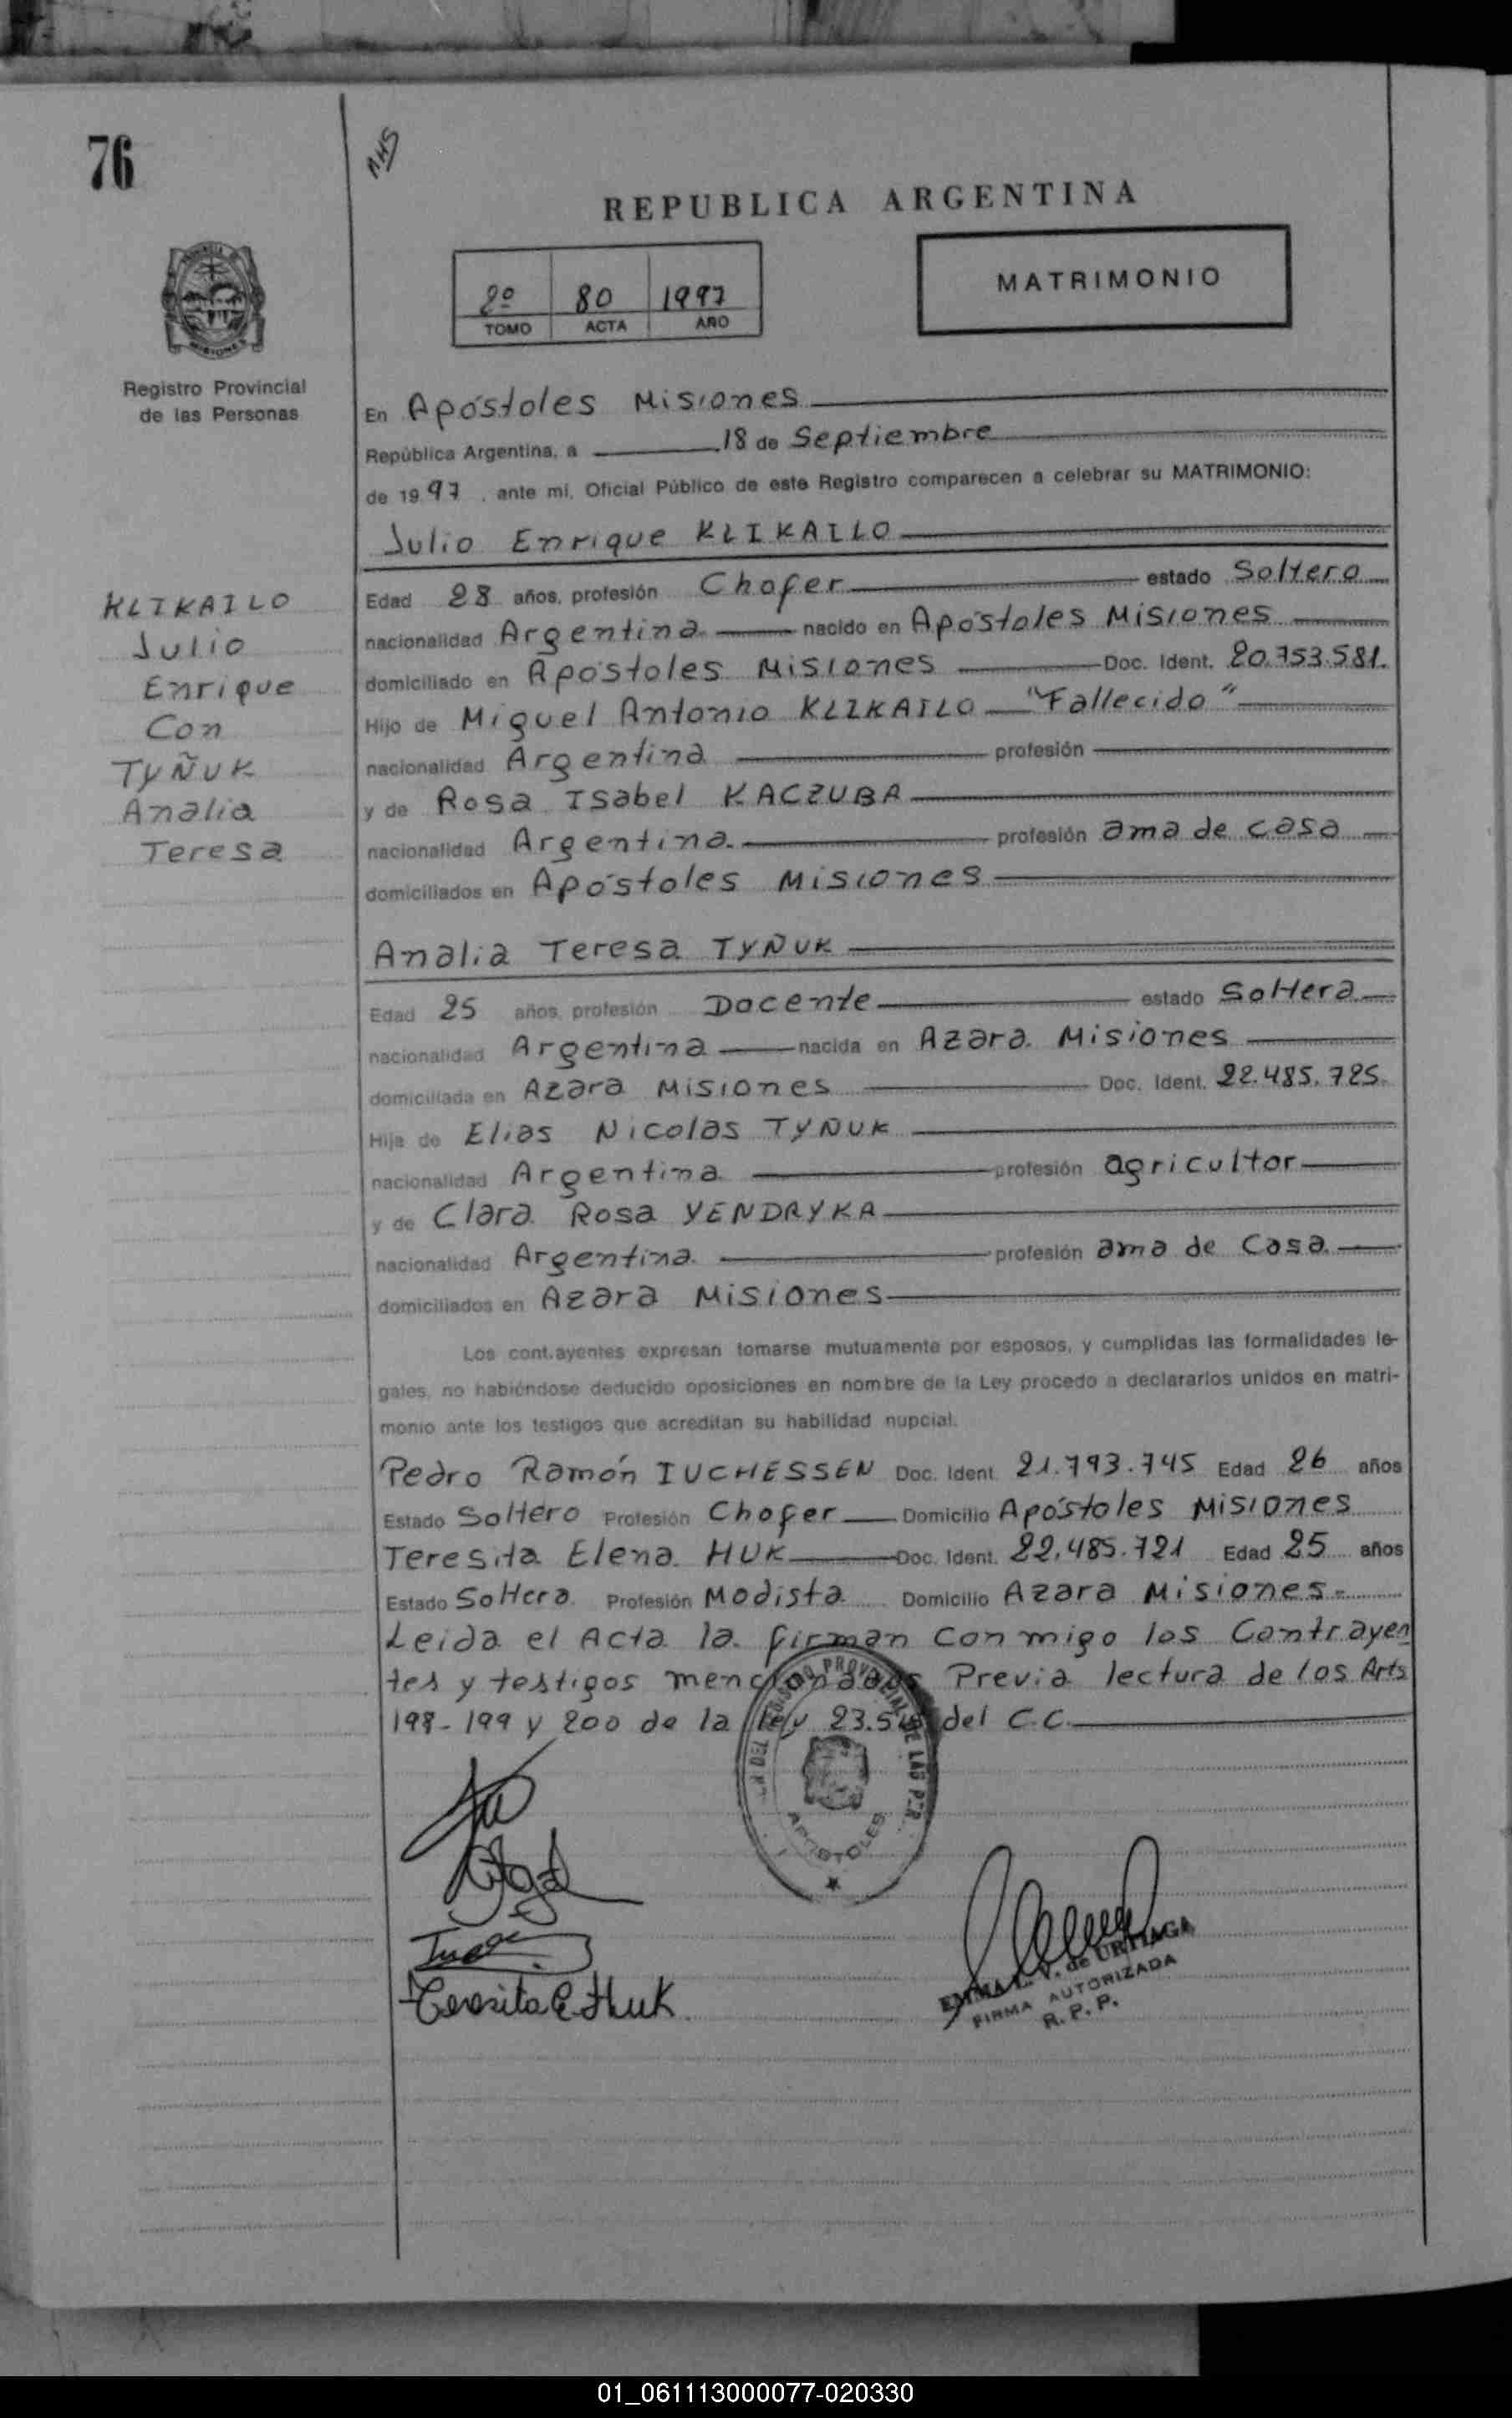 76
REPUBLICA ARGENTINA
2º 80 1997
TOMO ACTA AÑO
MATRIMONIO
Registro Provincial
de las Personas
En Apóstoles Misiones
República Argentina, a 18 de Septiembre
de 1997, ante mí, Oficial Público de este Registro comparecen a celebrar su MATRIMONIO:
Julio Enrique KLIKAILO
Edad 28 años, profesión Chofer estado Soltero
nacionalidad Argentina nacido en Apóstoles Misiones
domiciliado en Apóstoles Misiones Doc. Ident. 20.753.581.
Hijo de Miguel Antonio KLIKAILO "Fallecido"
nacionalidad Argentina profesión
y de Rosa Isabel KACZUBA
nacionalidad Argentina profesión ama de casa
domiciliados en Apóstoles Misiones
KLIKAILO
Julio
Enrique
Con
TYÑUK
Analia
Teresa
Analia Teresa TYÑUK
Edad 25 años, profesión Docente estado Soltera
nacionalidad Argentina nacida en Azara Misiones
domiciliada en Azara Misiones Doc. Ident. 22.485.725.
Hija de Elias Nicolas TYÑUK
nacionalidad Argentina profesión agricultor
y de Clara Rosa YENDRYKA
nacionalidad Argentina profesión ama de Casa
domiciliados en Azara Misiones
Los cont.ayentes expresan tomarse mutuamente por esposos, y cumplidas las formalidades le-
gales, no habiéndose deducido oposiciones en nombre de la Ley procedo a declararlos unidos en matri-
monio ante los testigos que acreditan su habilidad nupcial.
Pedro Ramón IUCHESSEN Doc. Ident. 21.793.745 Edad 26 años
Estado Soltero Profesión Chofer Domicilio Apóstoles Misiones
Teresita Elena HUK Doc. Ident. 22.485.721 Edad 25 años
Estado Soltera Profesión Modista Domicilio Azara Misiones
Leida el Acta la firman conmigo los Contrayen
tes y testigos mencionados Previa lectura de los Arts
198-199 y 200 de la ley 23.515 del C.C.
APOSTOLES
Teresita E. Huk
EMMA L. V. de URTIAGA
FIRMA AUTORIZADA
R. P. P.
01_061113000077-020330